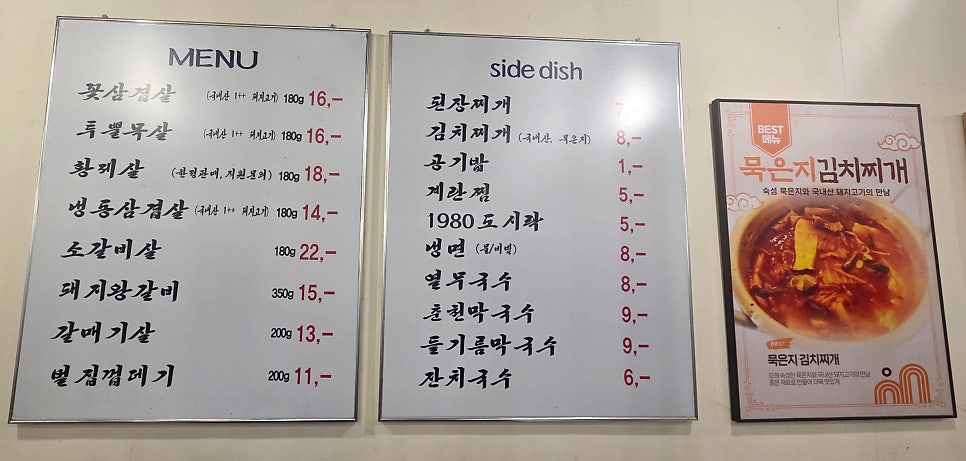 MENU
꽃삼겹살 (국내산 1++ 돼지고기) 180g 16,-
투뿔목살 (국내산 1++ 돼지고기) 180g 16,-
황제살 (한정판매, 직원문의) 180g 18,-
냉동삼겹살 (국내산 1++ 돼지고기) 180g 14,-
소갈비살 180g 22,-
돼지왕갈비 350g 15,-
갈매기살 200g 13,-
벌집껍데기 200g 11,-
side dish
된장찌개 7,-
김치찌개 (국내산, 묵은지) 8,-
공기밥 1,-
계란찜 5,-
1980도시락 5,-
냉면 (물/비빔) 8,-
열무국수 8,-
춘천막국수 9,-
들기름막국수 9,-
잔치국수 6,-
BEST
메뉴
묵은지김치찌개
숙성 묵은지와 국내산 돼지고기의 만남
BEST
묵은지 김치찌개
오래 숙성한 묵은지와 국내산 돼지고기의 만남
좋은 재료로 만들어 더욱 맛있게